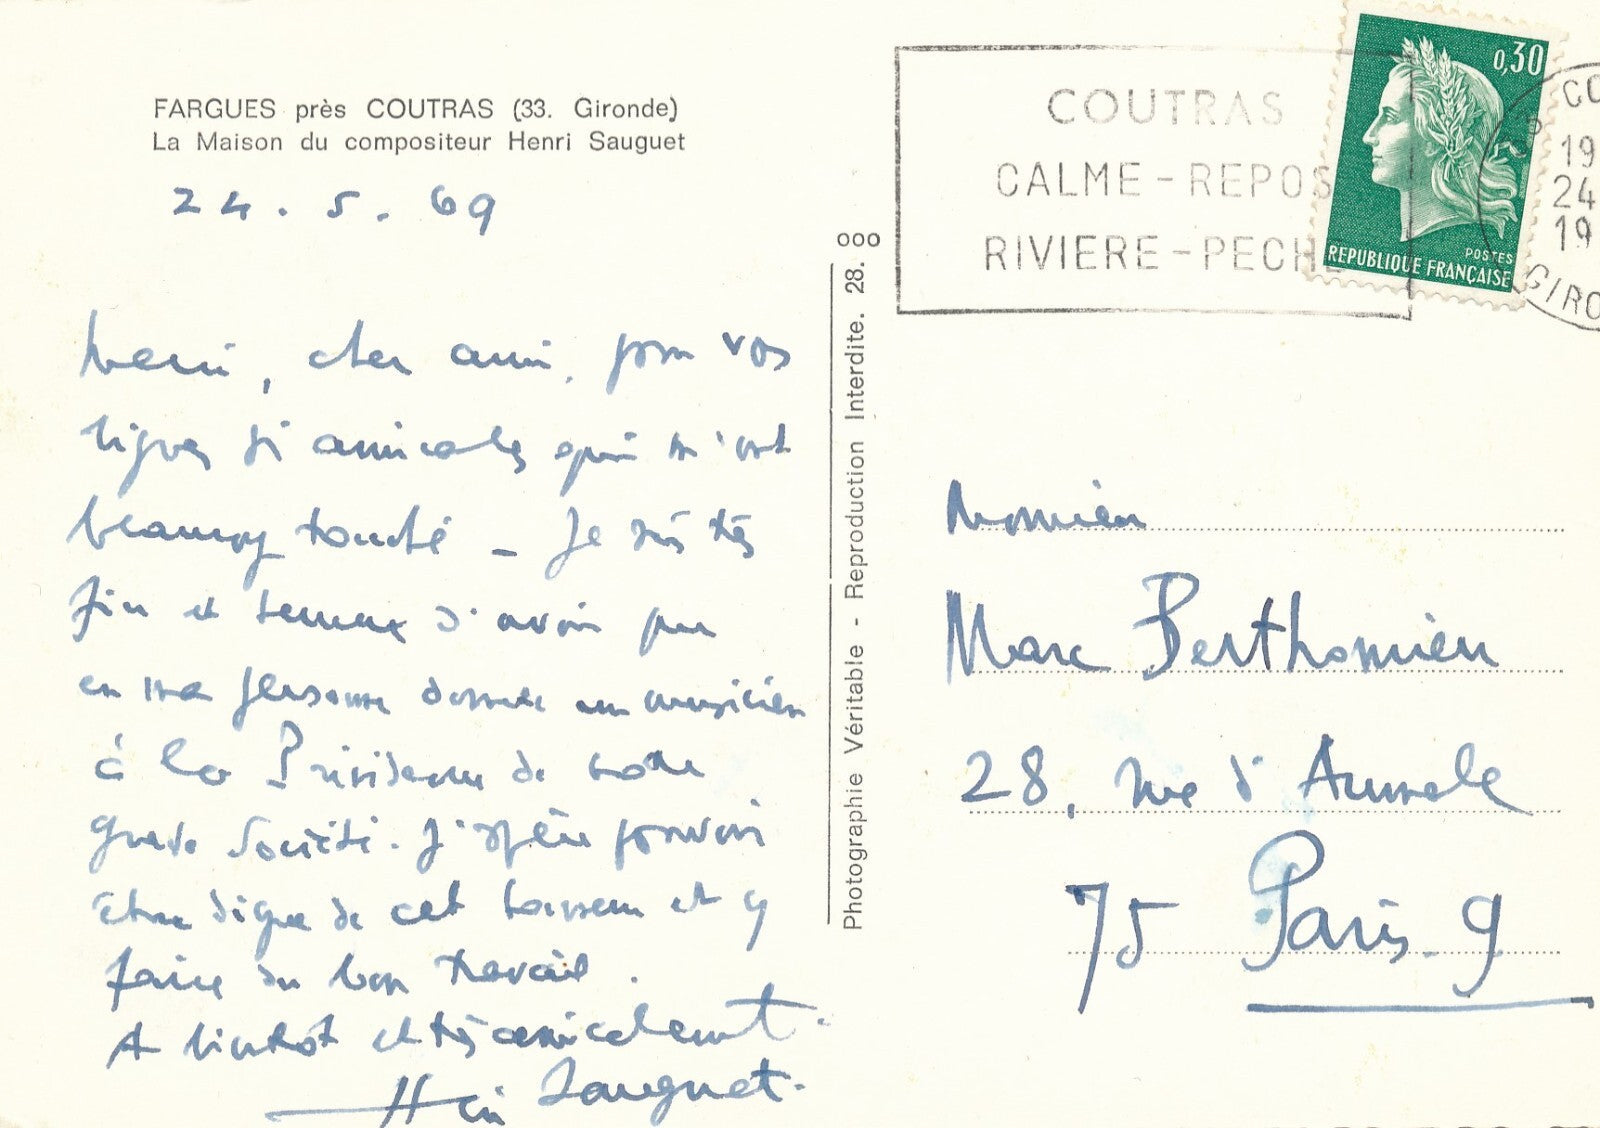 FARGUES près COUTRAS (33. Gironde)
La Maison du compositeur Henri Sauguet
24.5.69
Merci, cher ami, pour vos
lignes si amicales qui m'ont
beaucoup touché - Je suis très
fier et heureux d'avoir pu
en ma personne donner un musicien
à la Présidence de notre
grande Société. J'espère pouvoir
être digne de cet honneur et y
faire du bon travail.
A bientôt et très amicalement.
Henri Sauguet.
Photographie Véritable - Reproduction Interdite. 28. 000
COUTRAS
CALME - REPOS
RIVIERE - PECHE
0,30
POSTES
REPUBLIQUE FRANÇAISE
CO
19
24
19
GIRO
Monsieur
Marc Berthomieu
28, rue d'Aumale
75 Paris. 9